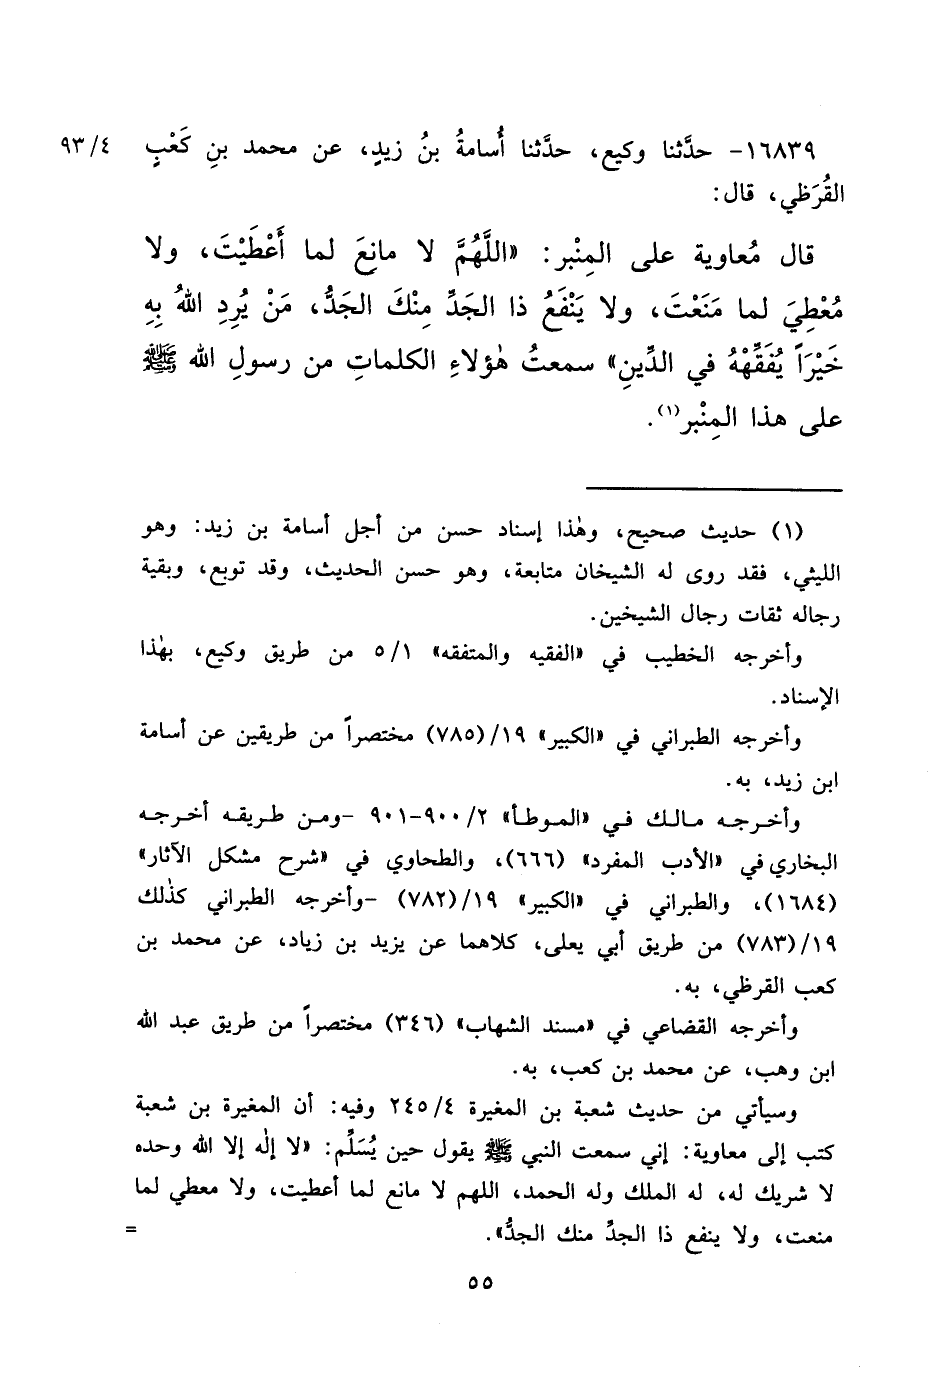 ١٦٨٣٩- حدَّثنا وكيع، حدَّثنا أُسامةُ بنُ زيدٍ، عن محمد بنِ كَعْبٍ ٩٣/٤
القُرَظي، قال:
قال مُعاوية على المِنْبر: «اللَّهُمَّ لا مانِعَ لما أَعْطَيْتَ، ولا
مُعْطِيَ لما مَنَعْتَ، ولا يَنْفَعُ ذا الجَدِّ مِنْكَ الجَدُّ، مَنْ يُرِدِ اللهُ بِهِ
خَيْرَاً يُفَقِّهْهُ في الدِّينِ» سمعتُ هٰؤلاءِ الكلماتِ من رسولِ الله ﷺ
على هذا المِنْبر(١).
(١) حديث صحيح، وهٰذا إسناد حسن من أجل أسامة بن زيد: وهو
الليثي، فقد روى له الشيخان متابعة، وهو حسن الحديث، وقد توبع، وبقية
رجاله ثقات رجال الشيخين.
وأخرجه الخطيب في «الفقيه والمتفقه» ٥/١ من طريق وكيع، بهٰذا
الإسناد.
وأخرجه الطبراني في «الكبير» ١٩/(٧٨٥) مختصراً من طريقين عن أسامة
ابن زيد، به.
وأخرجه مالك في «الموطأ» ٩٠٠/٢-٩٠١ -ومن طريقه أخرجه
البخاري في «الأدب المفرد» (٦٦٦)، والطحاوي في «شرح مشكل الآثار»
(١٦٨٤)، والطبراني في «الكبير» ١٩/(٧٨٢) -وأخرجه الطبراني كذٰلك
١٩/(٧٨٣) من طريق أبي يعلى، كلاهما عن يزيد بن زياد، عن محمد بن
كعب القرظي، به.
وأخرجه القضاعي في «مسند الشهاب» (٣٤٦) مختصراً من طريق عبد الله
ابن وهب، عن محمد بن كعب، به.
وسيأتي من حديث شعبة بن المغيرة ٢٤٥/٤ وفيه: أن المغيرة بن شعبة
كتب إلى معاوية: إني سمعت النبي ﷺ يقول حين يُسَلِّم: «لا إلٰه إلا الله وحده
لا شريك له، له الملك وله الحمد، اللهم لا مانع لما أعطيت، ولا معطي لما
منعت، ولا ينفع ذا الجدِّ منك الجدُّ». =
٥٥